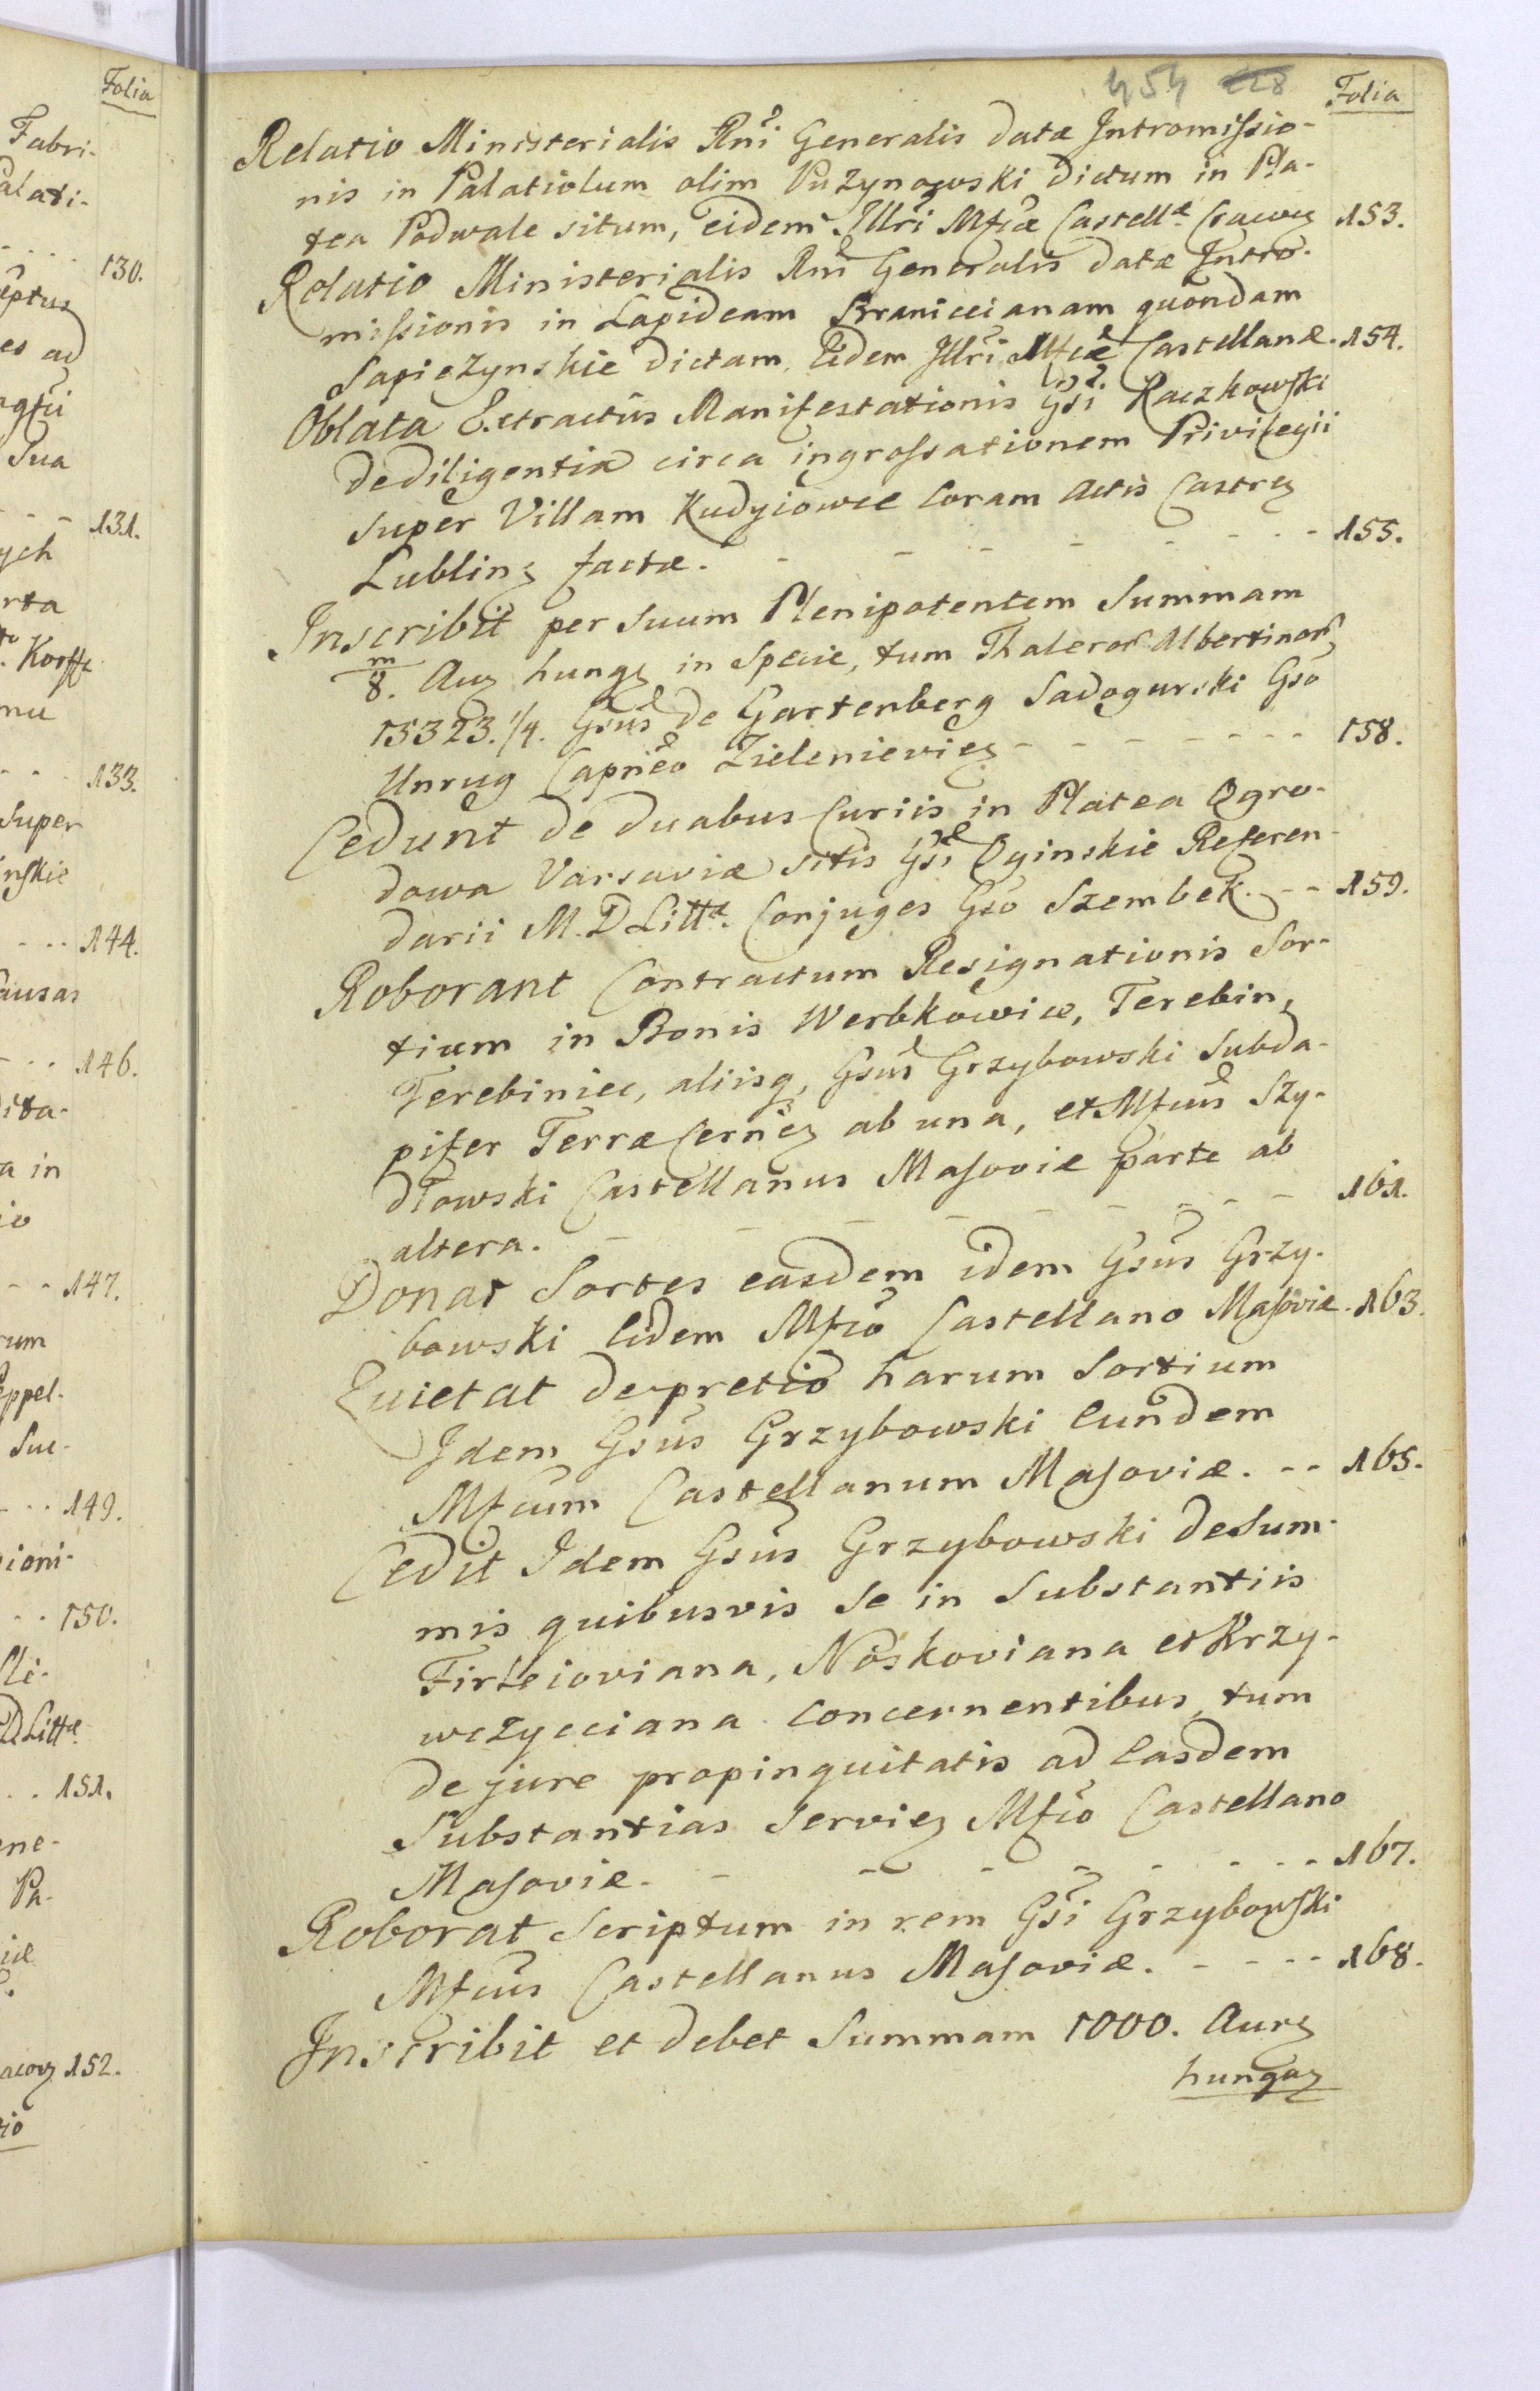 Folia
Fabri-
Palati-
130.
eptus
es ad
Sua
131.
ych
rta
Korff
mu
133.
Super
inskie
144.
Causas
146.
dita-
a in
io
147.
rum
eppel-
Suc-
149.
sioni-
150.
Pli-
D Littæ
151.
ene-
Pa-
iæ
acovz 152.
tio
454 228
Folia
Relatio Ministerialis Rni Generalis datæ Intromissio-
nis in Palatiolum olim Puzynowski dictum in Pla-
tea Podwale situm, eidem Illri Mfcæ Castellæ Cracovz 153.
Relatio Ministerialis Rni Generalis datæ Intro-
missionis in Lapideam Braniccianam quondam
Sapiezynskie dictam, Eidem Illri Mfcæ Castellanæ. 154.
Oblata Extractus Manifestationis Gsi Raczkowski
de diligentia circa ingrossationem Privilegii
super Villam Kudyiowce Coram Actis Castrz
Lublinz factæ. - - - - - - - 155.
Inscribit per Suum Plenipotentem Summam
m/8. Aurz hungz in Specie, tum Thaleror Albertinor,
15323.1/4. Gsus de Gartenberg Sadogurski Gso
Unrug Capneo Zielenieviez - - - - - - - 158.
Cedunt de duabus Curiis in Platea Ogro-
dowa Varsaviæ sitis Gsi Oginskie Referen-
darii M. D Littæ. Conjuges Gso Szembek. - - 159.
Roborant Contractum Resignationis Sor-
tium in Bonis Werbkowice, Terebin,
Terebiniec, aliisq, Gsus Grzybowski Subda-
pifer Terræ Cerniez ab una, et Mfcus Szy-
dłowski Castellanus Masoviæ parte ab
altera. - - - - - - - - 161.
Donat Sortes easdem idem Gsus Grzy-
bowski Eidem Mfco Castellano Masoviæ. 163.
Quietat de pretio harum Sortium
Idem Gsus Grzybowski Eundem
Mfcum Castellanum Masoviæ. - - 165.
Cedit Idem Gsus Grzybowski de Sum-
mis quibusvis Se in Substantiis
Firleioviana, Noskoviana et Krzy-
wczycciana concernentibus, tum
de jure propinquitatis ad Easdem
Substantias Serviez Mfco Castellano
Masoviæ. - - - - - - - 167.
Roborat Scriptum in rem Gsi Grzybowski
Mfcus Castellanus Masoviæ. - - - - 168.
Inscribit et debet Summam 1000. Aurz
hungaz